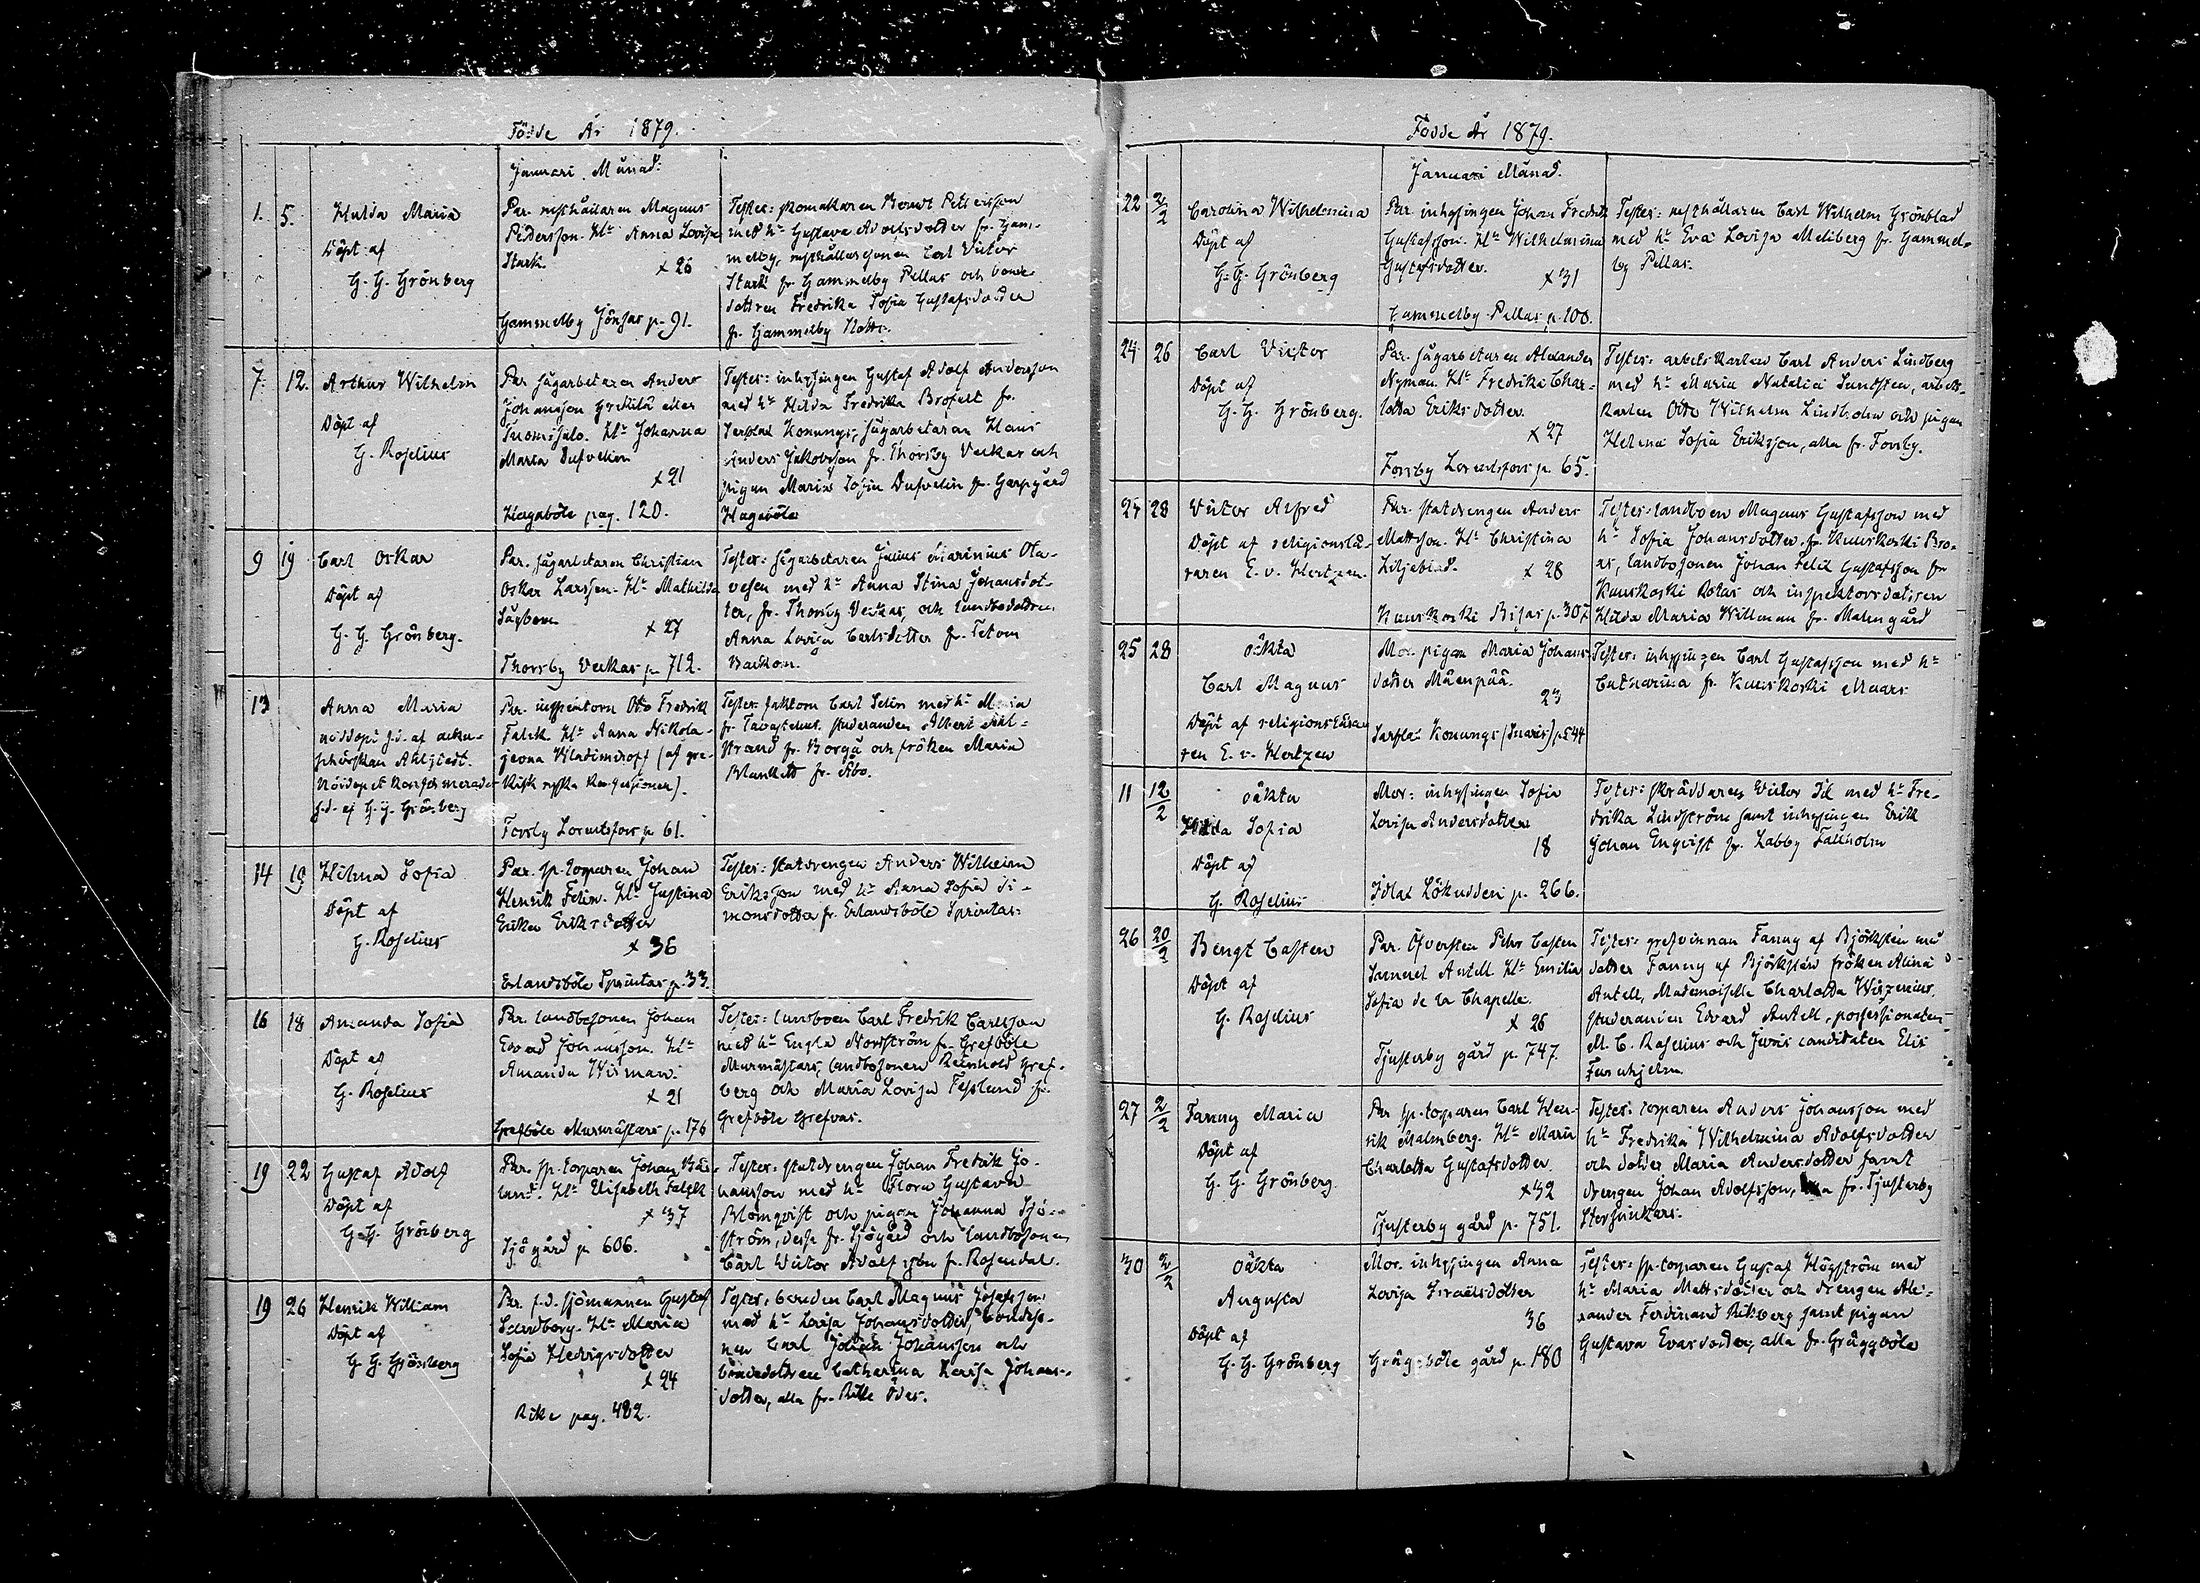 Födde År 1879.
Januari Månad.
1. 5. Hulda Maria
Döpt af
G. G. Grönberg
Par. rusthållaren Magnus
Pettersson. H:u Anna Lovisa
Stark.
x 26
Gammelby Jönsas p. 91.
Testes: skomakaren Berndt Pettersson
med h:u Gustava Adolfsdotter fr. Gam-
melby, rusthållaresonen Carl Victor
Stark fr Gammelby Pellas och bonde-
dottren Fredrika Sofia Gustafsdotter
fr. Gammelby
7. 12. Arthur Wilhelm
Döpt af
G. Roselius
Par sågarbetaren Anders
Johansson eller
H:u Johanna
Maria Dufvelin
x 21
Hagaböle pag. 120.
Testes: inhysingen Gustaf Adolf Andersson
med h:u Hilda Fredrika fr.
Konungs, sågarbetaren Klaus
Anders Jakobsson fr. Thorsby Veckas och
pigan Maria Sofia Dufvelin fr. Garpgård
Hagaböle
9 19 Carl Oskar
Döpt af
G. G. Grönberg.
Par. sågarbetaren Christian
Oskar Larsson. H:u Mathilda
x 27
Thorsby Veckas p 712.
Testes: sågarbetaren Julius Marinius Ola-
vesen med h:u Anna Stina Johansdot-
ter, fr. Thorsby Veckas, och landbodottren
Anna Lovisa Carlsdotter fr. Tetom
Backom.
13 Anna Maria
nöddöpt s.d. af
Ahlstedt.
Nöddopet konfirmerades
s.d. af G. G. Grönberg
Par. inspektorn Otto Fredrik
Falck H:u Anna Nikola-
jevna Wladimiroff (af gre-
kisk ryska konfessionen).
Forsby Lorentsfors p 61.
Testes: faktorn Carl Selin med h:u Maria
fr Tavastehus, studeranden Albert
strand fr Borgå och fröken Maria
fr. Åbo.
14 19 Hilma Sofia
Döpt af
G. Roselius
Par. sp. torparen Johan
Henrik Felin. H:u Justina
Erika Eriksdotter
x 36
Erlandsböle Sprintas p. 33.
Testes: statdrengen Anders Wilhelm
Eriksson med h:u Anna Sofia Si-
monsdotter fr. Erlandsböle Sprintas.
16 18 Amanda Sofia
Döpt af
G. Roselius
Par. landbosonen Johan
Edvard Johansson. H:u
Amanda Widman.
x 21
Grefböle Murmästars p. 176
Testes: landboen Carl Fredrik Carlsson
med h:u Engla Nordström fr. Grefböle
Murmästars, landbosonen Reinhold Gref-
berg och Maria Lovisa Fesslund fr.
Grefböle Grefvas.
19 22 Gustaf Adolf
Döpt af
G. G. Grönberg
Par. sp. torparen Johan
H:u Elisabeth Falck
x 37
Sjögård p 606.
Testes: statdrengen Johan Fredrik Jo-
hansson med h:u Flora Gustava
Blomqvist och pigan Johanna Sjö-
ström, desse fr. Sjögård och landbosonen
Carl Victor Adolfsson fr. Rosendal.
19 26 Henrik William
Döpt af
G. G. Grönberg
Par. f.d. sjömannen Gustaf
Sandberg. H:u Maria
Sofia Hedvigsdotter
x 24
Rike pag. 482.
Testes: bonden Carl Magnus Josefsson
med h:u Lovisa Johansdotter, bondeso-
nen Carl Johan Johansson och
bondedottren Catharina Lovisa Johans-
dotter, alla fr. Rike Ödes.
Födde År 1879.
Januari Månad.
22 2/2 Carolina Wilhelmina
Döpt af
G. G. Grönberg
Par inhysingen Johan Fredrik
Gustafsson. H:u Wilhelmina
Gustafsdotter.
x 31
Gammelby Pellas p. 100.
Testes: rusthållaren Carl Wilhelm Grönblad
med h:u Eva Lovisa Meliberg fr. Gammel-
by Pellas.
24 26 Carl Victor
Döpt af
G. G. Grönberg.
Par. sågarbetaren Alexander
Nyman. H:u Fredrika Char-
lotta Eriksdotter.
x 27
Forsby Lorentsfors p. 65.
Testes: arbetskarlen Carl Anders Lindberg
med h:u Maria Natalia Sundsten, arbets-
karlen Otto Wilhelm Lindholm och pigan
Helena Sofia Eriksson, alla fr. Forsby.
25 28 Victor Alfred
Döpt af religionslä-
raren E. v. Hertzen.
Par. statdrengen Anders
Mattsson. H:u Christina
Liljeblad.
x 28
Kuuskoski p. 307
Testes: landboen Magnus Gustafsson med
h:u Sofia Johansdotter fr. Kuuskoski Bro-
as, landbosonen Johan Felix Gustafsson fr
Kuuskoski och inspektorsdottren
Hilda Maria Willman fr. Malmgård
25 28 oäkta
Carl Magnus
Döpt af religionslära-
ren E. v. Hertzen
Mor. pigan Maria Johans-
dotter Mäenpää.
23
Konungs p. 544
Testes: inhysingen Carl Gustafsson med h:u
Catharina fr. Kuuskoski Maars
11 12/2 oäkta
Hilda Sofia
Döpt af
G. Roselius
Mor: inhysingen Sofia
Lovisa Andersdotter
18
Idlax Lökudden p. 266.
Testes: skräddaren Victor Id med h:u Fre-
drika Lindström samt inhysingen Erik
Johan Enqvist fr. Labby Tallholm
26 20/2 Bengt Casten
Döpt af
G. Roselius
Par. Öfversten Pehr Casten
Samuel Antell H:u Emilia
Sofia de la Chapelle.
x 26
Tjusterby gård p 747.
Testes: grefvinnan Fanny af Björkstén med
dotter Fanny af Björkstén fröken Alina
Antell, Mademoiselle Charlotta Wigrenius,
studeranden Edvard Antell, possessionaten
M. C. Roselius och Juris candidaten Elis
Furuhjelm
27 2/2 Fanny Maria
Döpt af
G. G. Grönberg.
Par sp. torparen Carl Hen-
rik Malmberg. H:u Maria
Charlotta Gustafsdotter.
x 32
Tjusterby gård p. 751.
Testes: torparen Anders Johansson med
h:u Fredrika Wilhelmina Adolfsdotter
och dotter Maria Andersdotter samt
drengen Johan Adolfsson, fr. Tjusterby
30 2/2 oäkta
Augusta
Döpt af
G. G. Grönberg
Mor. inhysingen Anna
Lovisa Israelsdotter
36
Gräggböle gård p. 180
Testes: sp. torparen Gustaf Högström med
h:u Maria Mattsdotter och drengen Alex-
ander Ferdinand Rikberg samt pigan
Gustava Evasdotter, alla fr. Gräggböle